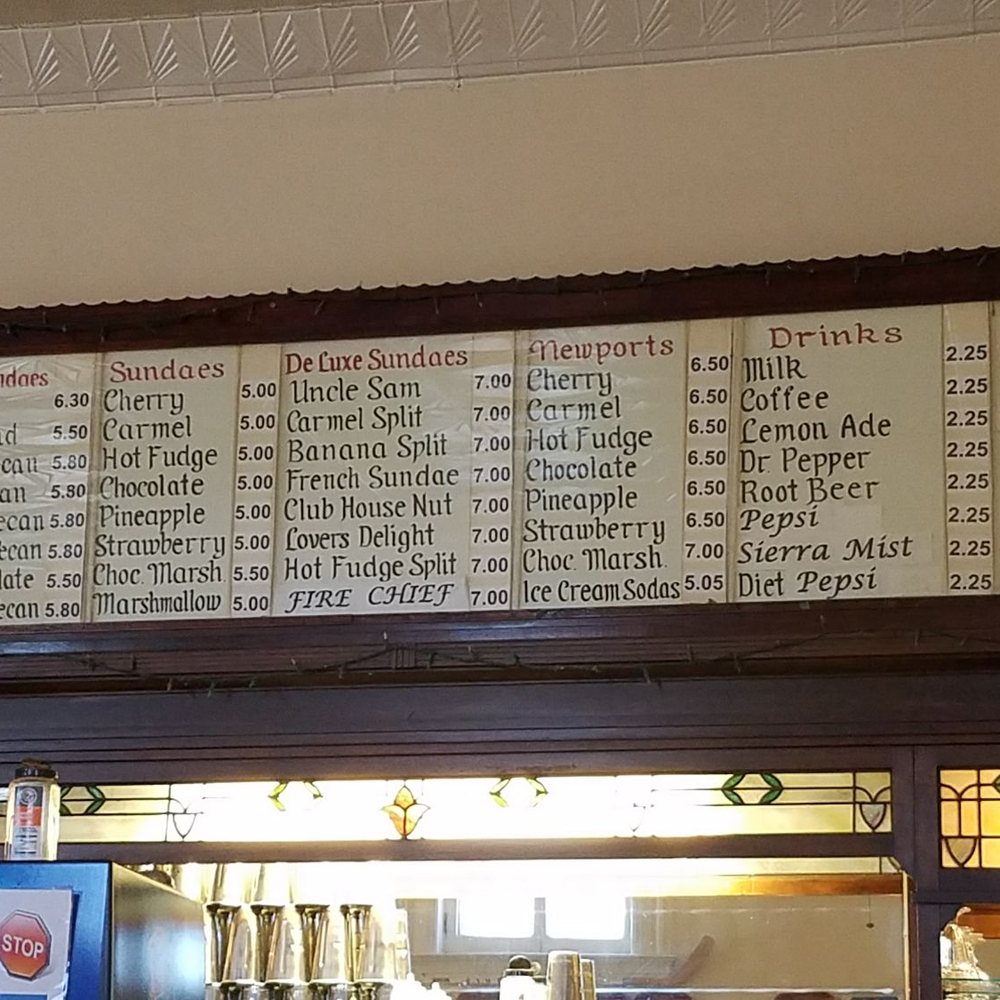 ndaes
6.30
d 5.50
can 5.80
an 5.80
ecan 5.80
ecan 5.80
late 5.50
ecan 5.80
Sundaes
Cherry 5.00
Carmel 5.00
Hot Fudge 5.00
Chocolate 5.00
Pineapple 5.00
Strawberry 5.00
Choc. Marsh. 5.50
Marshmallow 5.00
De Luxe Sundaes
Uncle Sam 7.00
Carmel Split 7.00
Banana Split 7.00
French Sundae 7.00
Club House Nut 7.00
Lovers Delight 7.00
Hot Fudge Split 7.00
FIRE CHIEF 7.00
Newports
Cherry 6.50
Carmel 6.50
Hot Fudge 6.50
Chocolate 6.50
Pineapple 6.50
Strawberry 6.50
Choc. Marsh. 7.00
Ice Cream Sodas 5.05
Drinks
Milk 2.25
Coffee 2.25
Lemon Ade 2.25
Dr. Pepper 2.25
Root Beer 2.25
Pepsi 2.25
Sierra Mist 2.25
Diet Pepsi 2.25
STOP